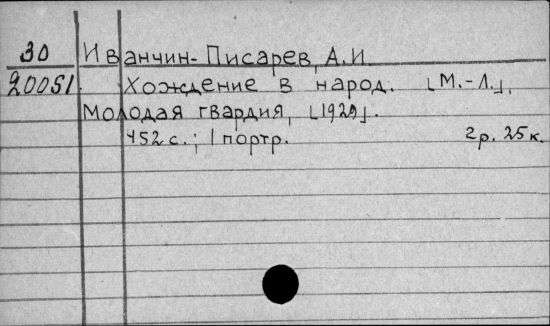 30 Иванчин-Писарев, А.И.
20051 Хождение в народ. [М.-Л.],
Молодая гвардия, [1929].
452 с.; 1 портр. 2р. 25к.